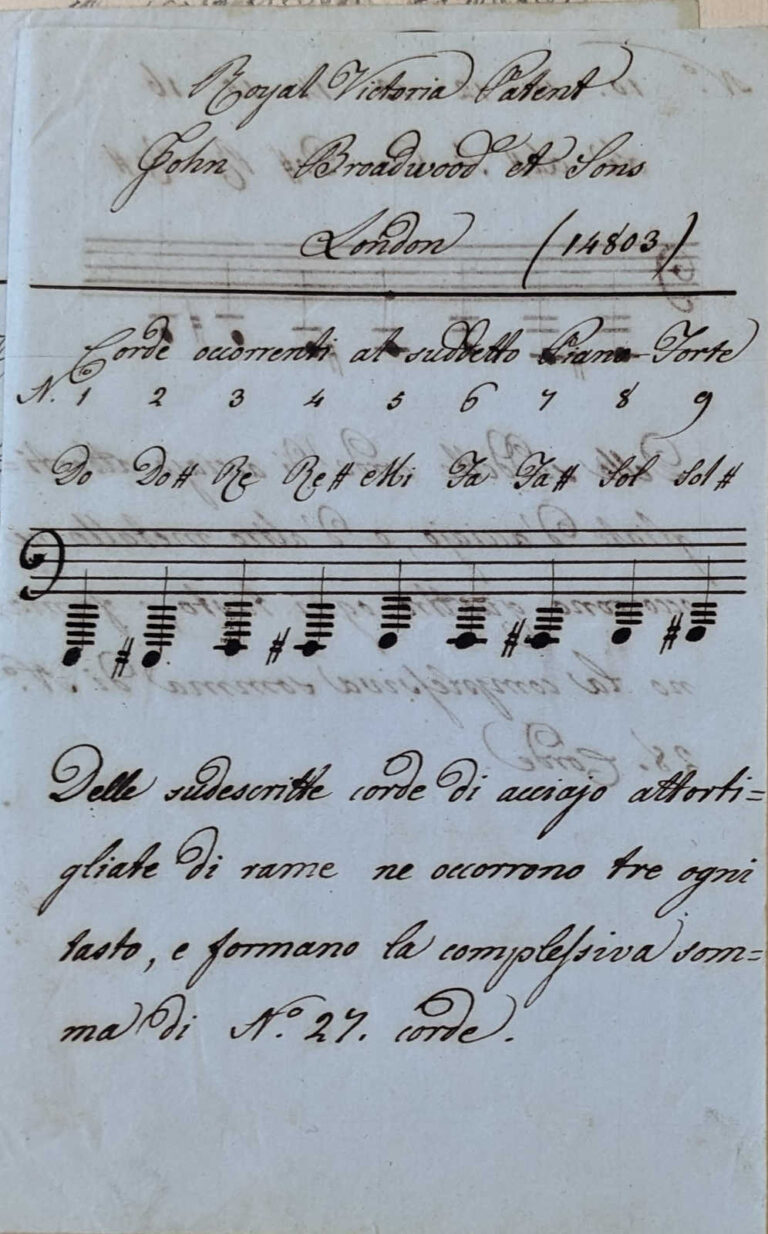 Royal Victoria Patent
John Broadwood et Sons
London (14803)
Corde occorrenti al suddetto Piano-Forte
N.º 1 2 3 4 5 6 7 8 9
Do Do# Re Re# Mi Fa Fa# Sol Sol#
Delle sudescritte corde di acciajo attorti=
gliate di rame ne occorrono tre ogni
tasto, e formano la compleſsiva som=
ma di N.º 27. corde.